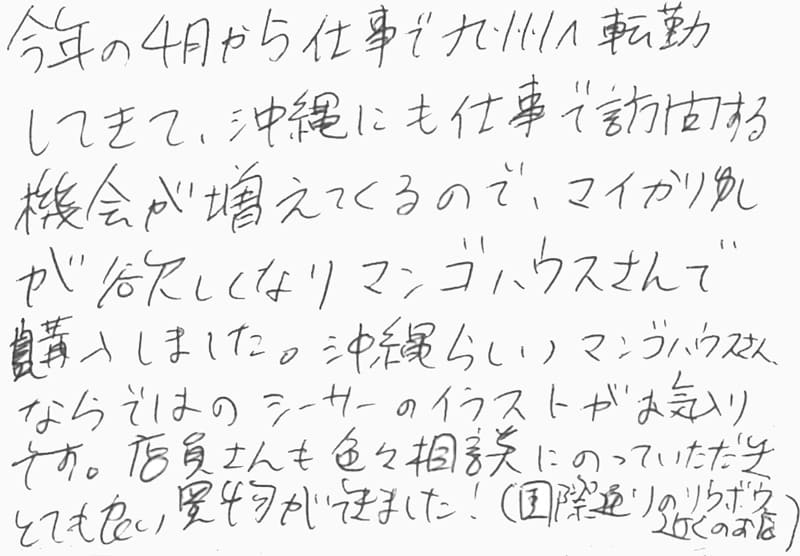 今年の4月から仕事で九州へ転勤
してきて、沖縄にも仕事で訪問する
機会が増えてくるので、マイかりゆし
が欲しくなりマンゴハウスさんで
購入しました。沖縄らしいマンゴハウスさん
ならではのシーサーのイラストがお気入り
です。店員さんも色々相談にのっていただき
とても良い買物ができました！（国際通りのリウボウ
近くのお店）